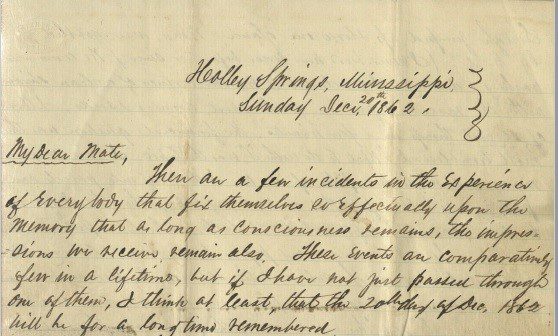 Holley Springs, Mississippi
Sunday Dec. 20th 1862.
My Dear Mate,
Ther are a few incidents in the Experience
of Everybody that fix themselves so Effectually upon the
Memory that as long as consciousness remains, the impres-
-sions we receive remain also. These Events are comparatively
few in a lifetime, but if I have not just passed through
one of them, I think at least, that the 20th day of Dec. 1862
will be for a long time remembered